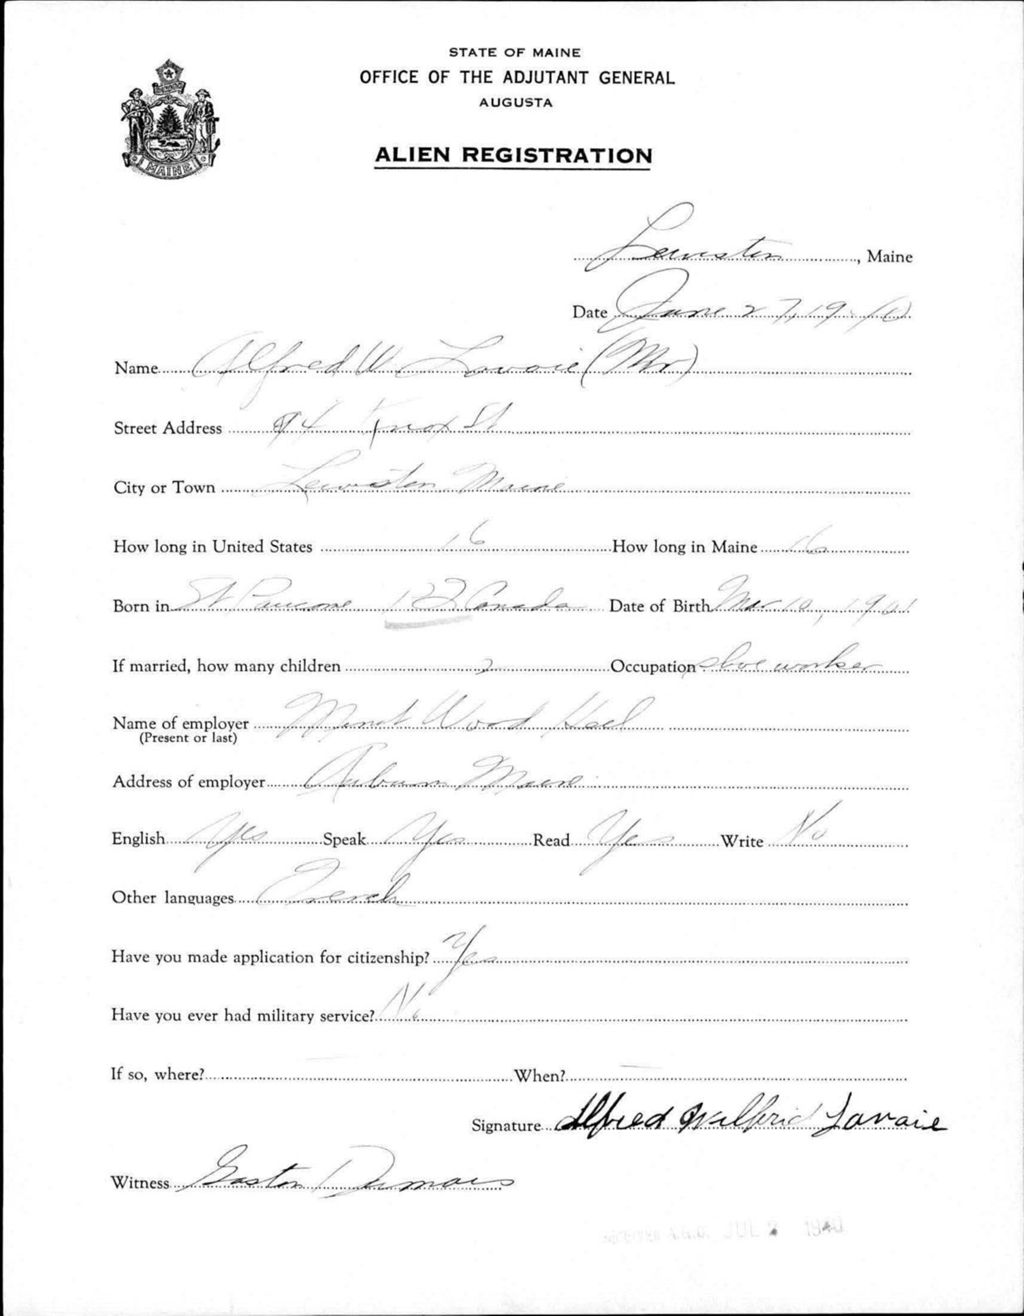 STATE OF MAINE
OFFICE OF THE ADJUTANT GENERAL
AUGUSTA
ALIEN REGISTRATION
MAINE
Lewiston, Maine
Date June 27, 1940
Name Alfred W Lavoie (Mr)
Street Address 94 Knox St
City or Town Lewiston Maine
How long in United States 16 How long in Maine 16
Born in St P.Q Canada Date of Birth Mar 10, 1901
If married, how many children 2 Occupation shoe worker
Name of employer Wood Heel
(Present or last)
Address of employer Auburn Maine
English Yes Speak Yes Read Yes Write No
Other languages French
Have you made application for citizenship? Yes
Have you ever had military service? No
If so, where? When?
Signature Alfred Wilfrid Lavoie
Witness Gaston Dumais
RECEIVED A.G.O. JUL 2 1940